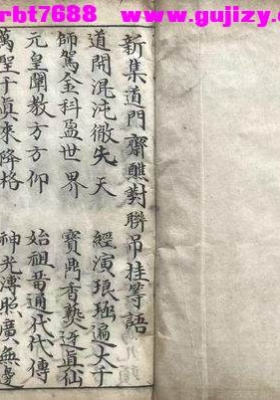 rbt7688 www.gujizy.c
新集道門齋醮對聯吊挂等語
道開混沌徹失天 經演琅函遍大千
師駕金科盈世界 寶鼎香爇迓真仙
元皇闡教方方仰 始祖昔通代代傳
萬聖于真來降格 神光溥照廣無邊